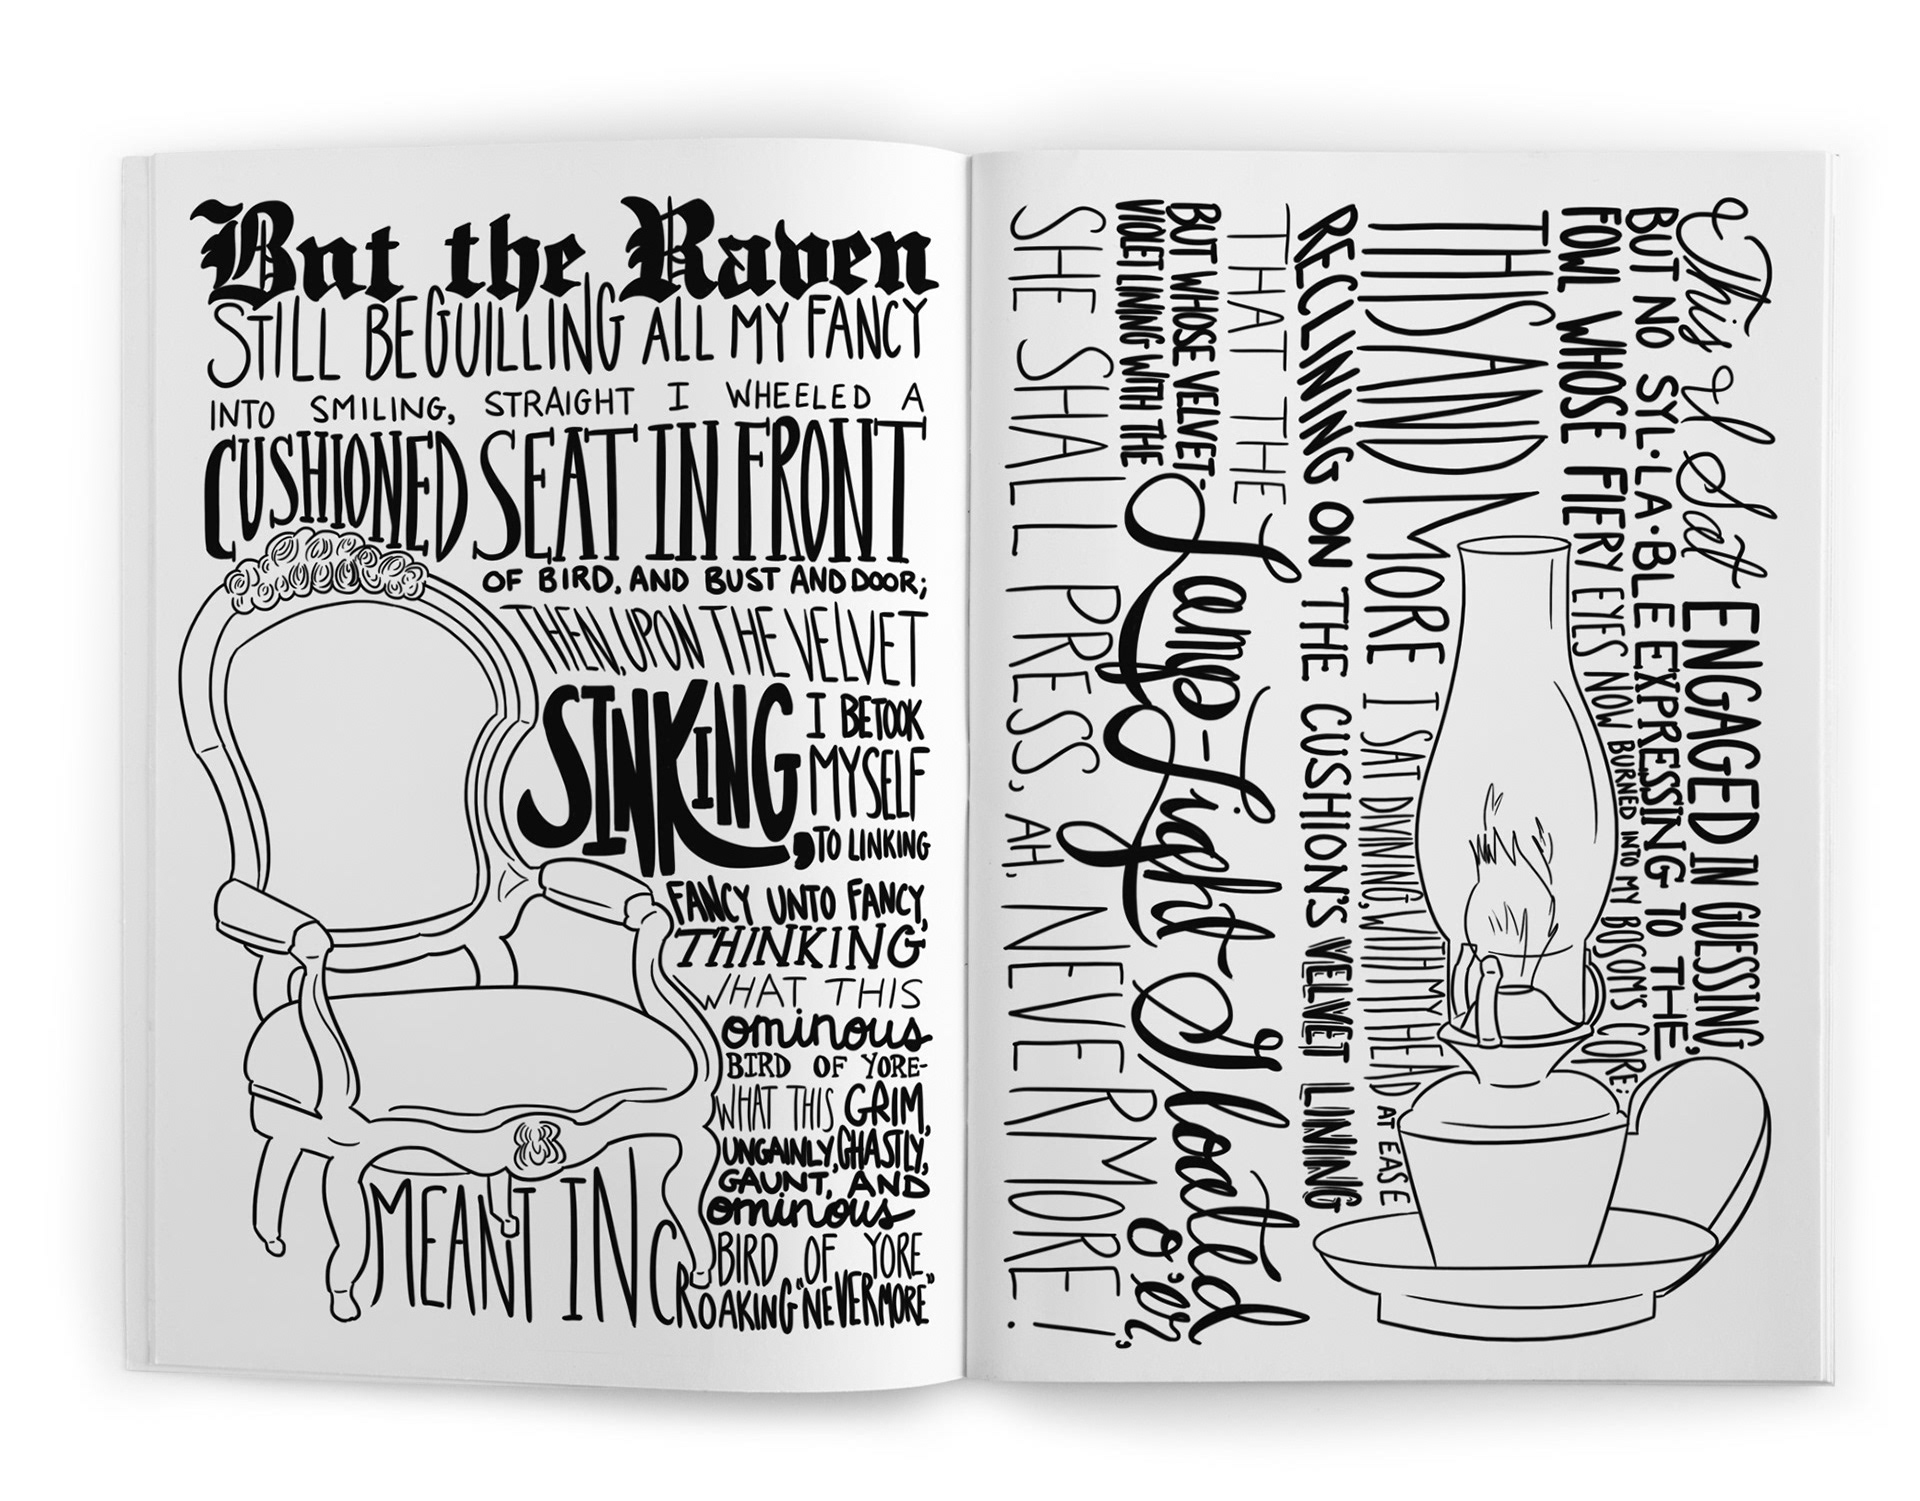 But the Raven
STILL BEGUILLING ALL MY FANCY
INTO SMILING, STRAIGHT I WHEELED A
CUSHIONED SEAT IN FRONT
OF BIRD, AND BUST AND DOOR;
THEN, UPON THE VELVET
SINKING, I BETOOK
MYSELF
TO LINKING
FANCY UNTO FANCY,
THINKING
WHAT THIS
ominous
BIRD OF YORE-
WHAT THIS GRIM,
UNGAINLY, GHASTLY,
GAUNT, AND
ominous
BIRD OF YORE
MEANT IN CROAKING "NEVERMORE"
This I Sat ENGAGED IN GUESSING
BUT NO SYL·LA·BLE EXPRESSING TO THE,
FOWL WHOSE FIERY EYES NOW BURNED INTO MY BOSOM'S CORE;
THIS AND MORE I SAT DIVINING, WITH MY HEAD AT EASE
RECLINING ON THE CUSHION'S VELVET LINING
THAT THE
BUT WHOSE VELVET-
VIOLET LINING WITH THE
Lamp-Light Gloated O'er,
SHE SHALL PRESS, AH, NEVERMORE!